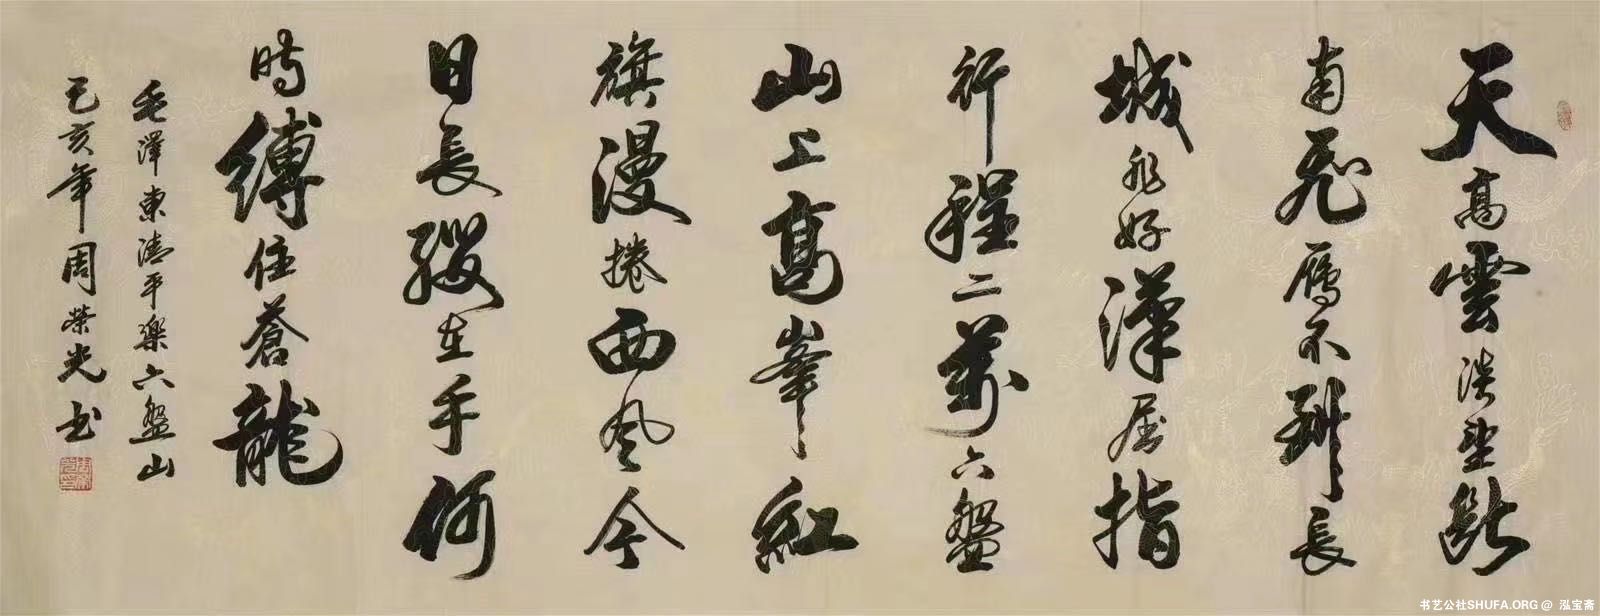 天高雲淡望斷
南飛雁不到長
城非好漢屈指
行程二萬六盤
山上高峯紅
旗漫捲西风今
日長纓在手何
時縛住蒼龍
毛澤東清平樂六盤山
己亥年周榮光书
书艺公社SHUFA.ORG @ 泓宝斋